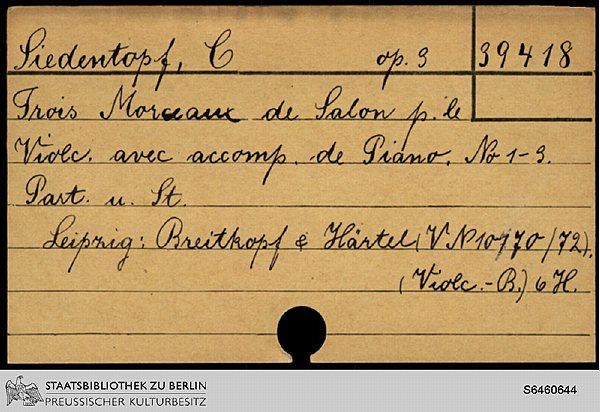 Siedentopf, C op. 3 39418
Trois Morceaux de Salon p. le
Violc. avec accomp. de Piano. No 1-3.
Part. u. St.
Leipzig: Breitkopf & Härtel (VN 10770/72).
(Violc.-B.) 6 H.
STAATSBIBLIOTHEK ZU BERLIN
PREUSSISCHER KULTURBESITZ
S6460644